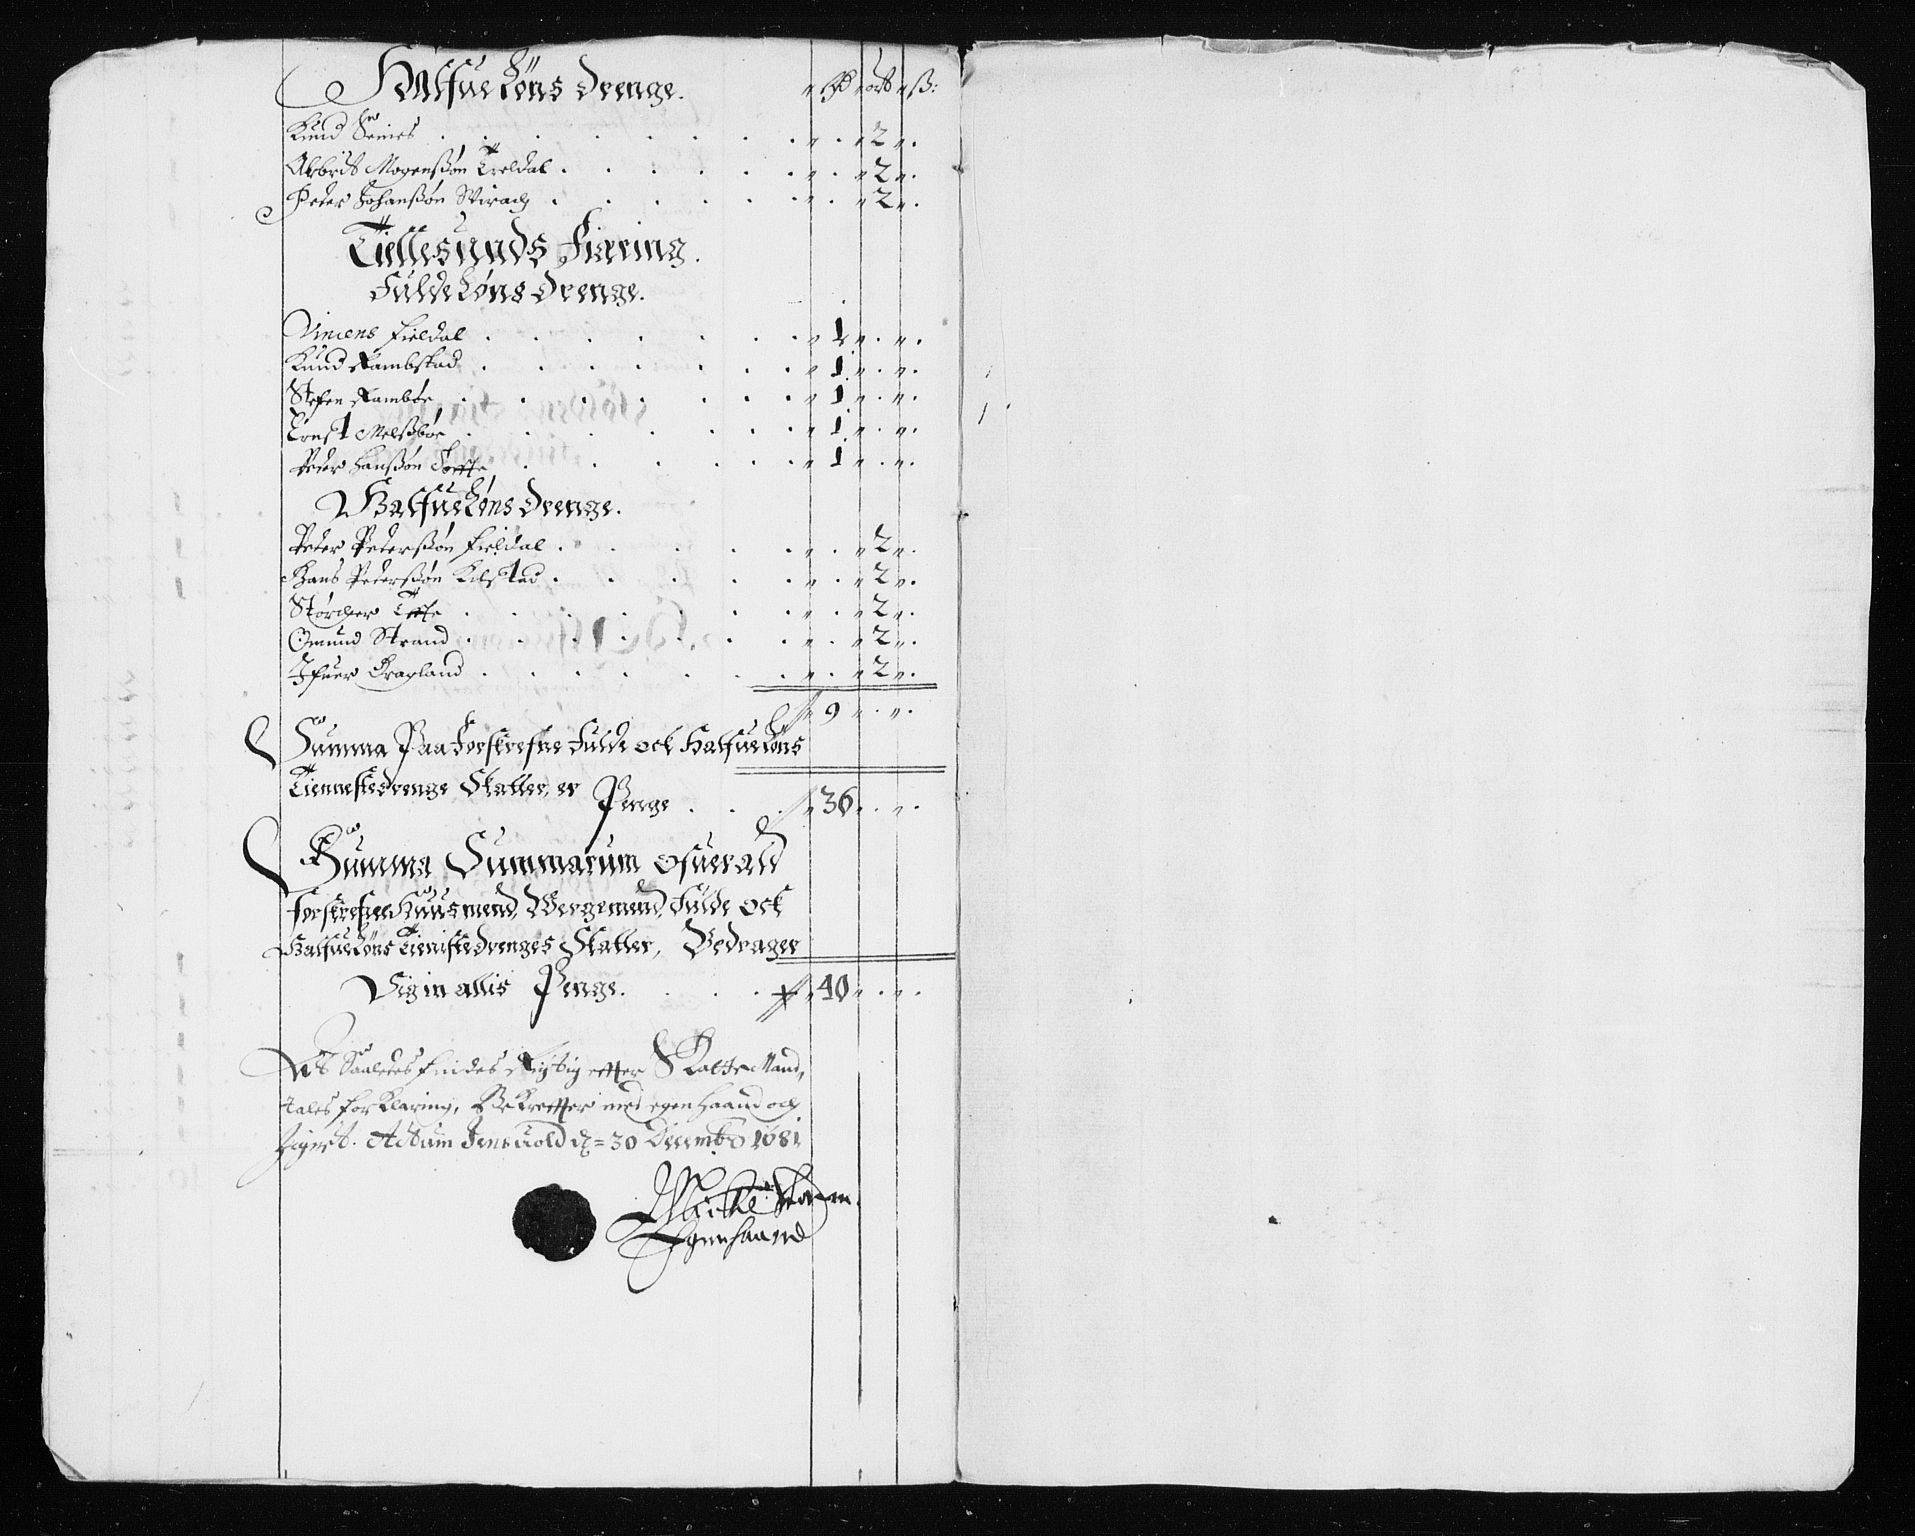 Halfue Løns Drenge. Rd ort ß:
Knud Semes . . . . . . . 2 .
Abrit Mogenßøn Treldal . . . . . 2 .
Peder Johanßøn Wirach . . . . . 2 .
Tiellesunds Fiering.
Fulde Løns Drenge.
Vincens Fieldal . . . . . 1 . .
Knud Rambstad . . . . . 1 . .
Stefen Ramböe . . . . . 1 . .
Ernst Melßbøe . . . . . 1 . .
Peder Hanßøn Toffte . . . . . 1 . .
Halfue Løns Drenge.
Peder Pederßøn Fieldal . . . . . 2 .
Hans Pederßøn Kilstad . . . . . 2 .
Størcher . . . . . 2 .
Omund Strand . . . . . 2 .
Ifuer Kragland . . . . . 2 .
9 . .
Summa Paa Forskrefne Fulde ock Halfue Løns
Tienneste drenge Skatter, er Penge . . . 36 . .
Summa Summarum ofuer all
forskrefne Huusmend, Wergemend, Fulde ock
Halfue Løns Tieniste drenges Skatter, Bedrager
Sig in allis Penge. . . . 40 . .
At Saaledes findes Rigtig effter Skatte Mand,
tales forklaring, Bekreffter med egen haand och
Zignet. Actum Jensvold d = 30 Decembr 1681
Mickel
Egenhaand